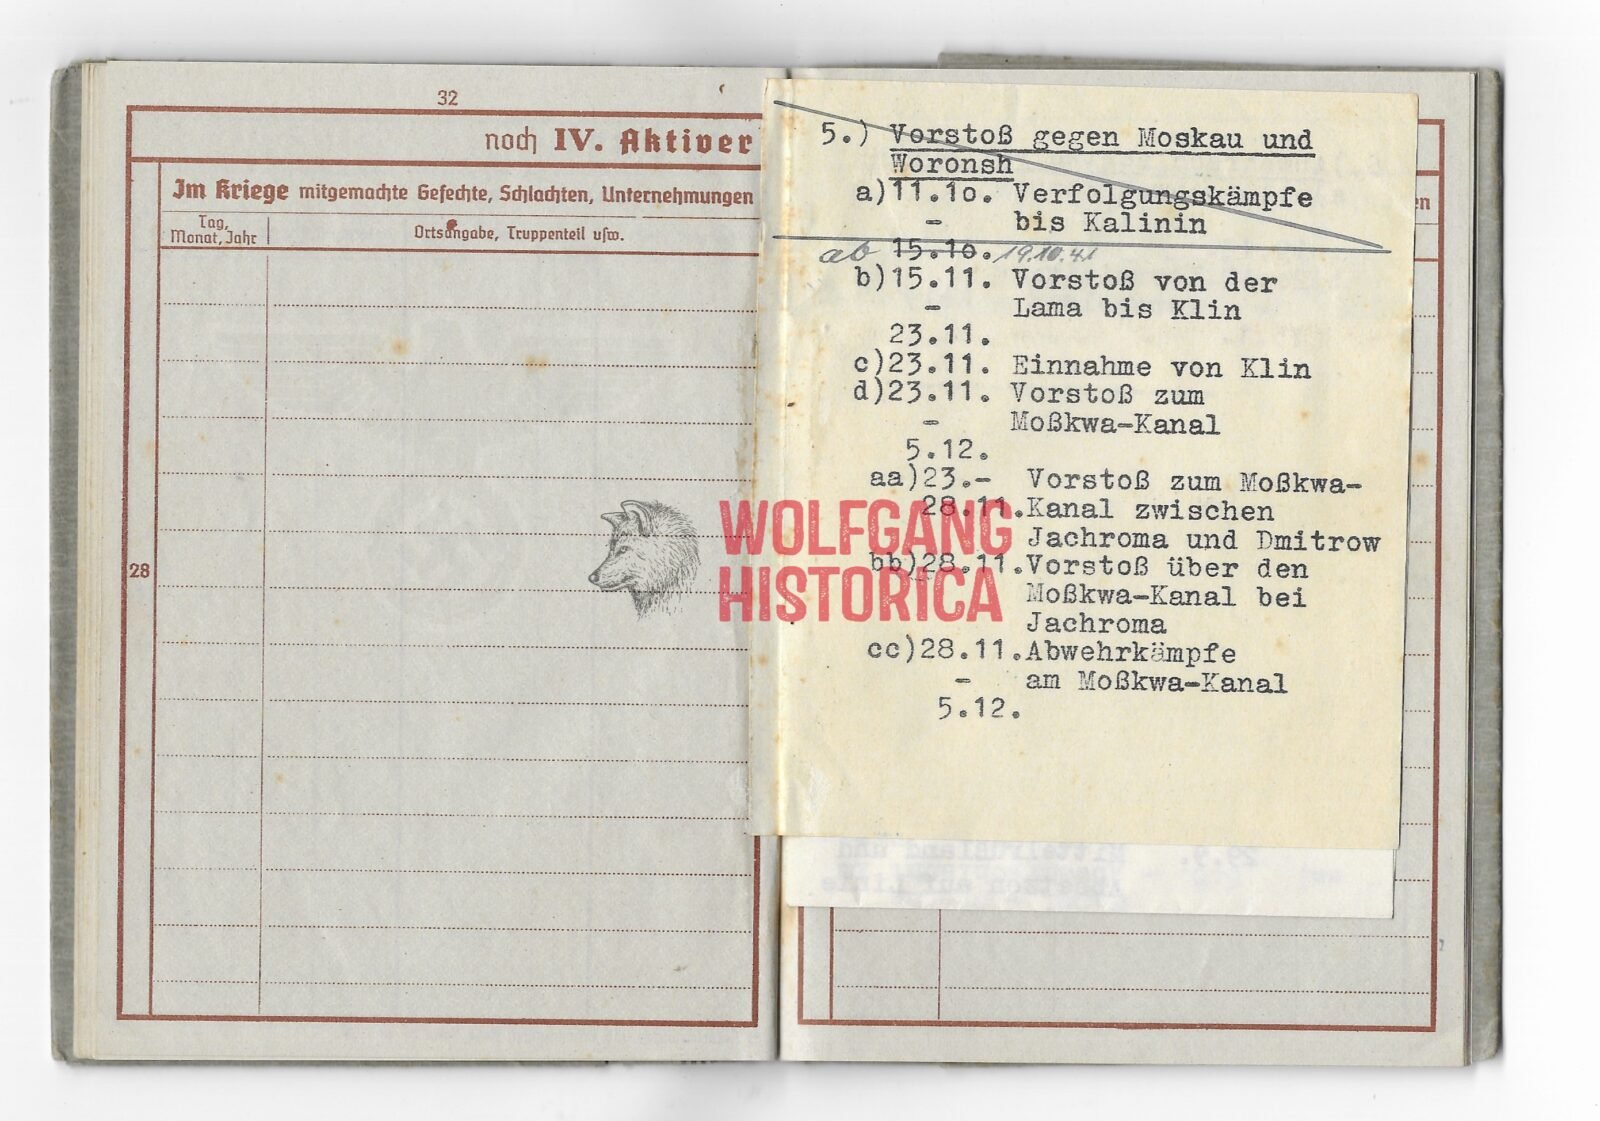 32
noch IV. Aktiver
Im Kriege mitgemachte Gefechte, Schlachten, Unternehmungen
Tag,
Monat, Jahr
Ortsangabe, Truppenteil usw.
28
5.) Vorstoß gegen Moskau und
Woronsh
a)11.10. Verfolgungskämpfe
- bis Kalinin
ab 15.10. 19.10.41
b)15.11. Vorstoß von der
- Lama bis Klin
23.11.
c)23.11. Einnahme von Klin
d)23.11. Vorstoß zum
- Moßkwa-Kanal
5.12.
aa)23.- Vorstoß zum Moßkwa-
28.11. Kanal zwischen
Jachroma und Dmitrow
bb)28.11. Vorstoß über den
Moßkwa-Kanal bei
Jachroma
cc)28.11. Abwehrkämpfe
- am Moßkwa-Kanal
5.12.
en
WOLFGANG
HISTORICA